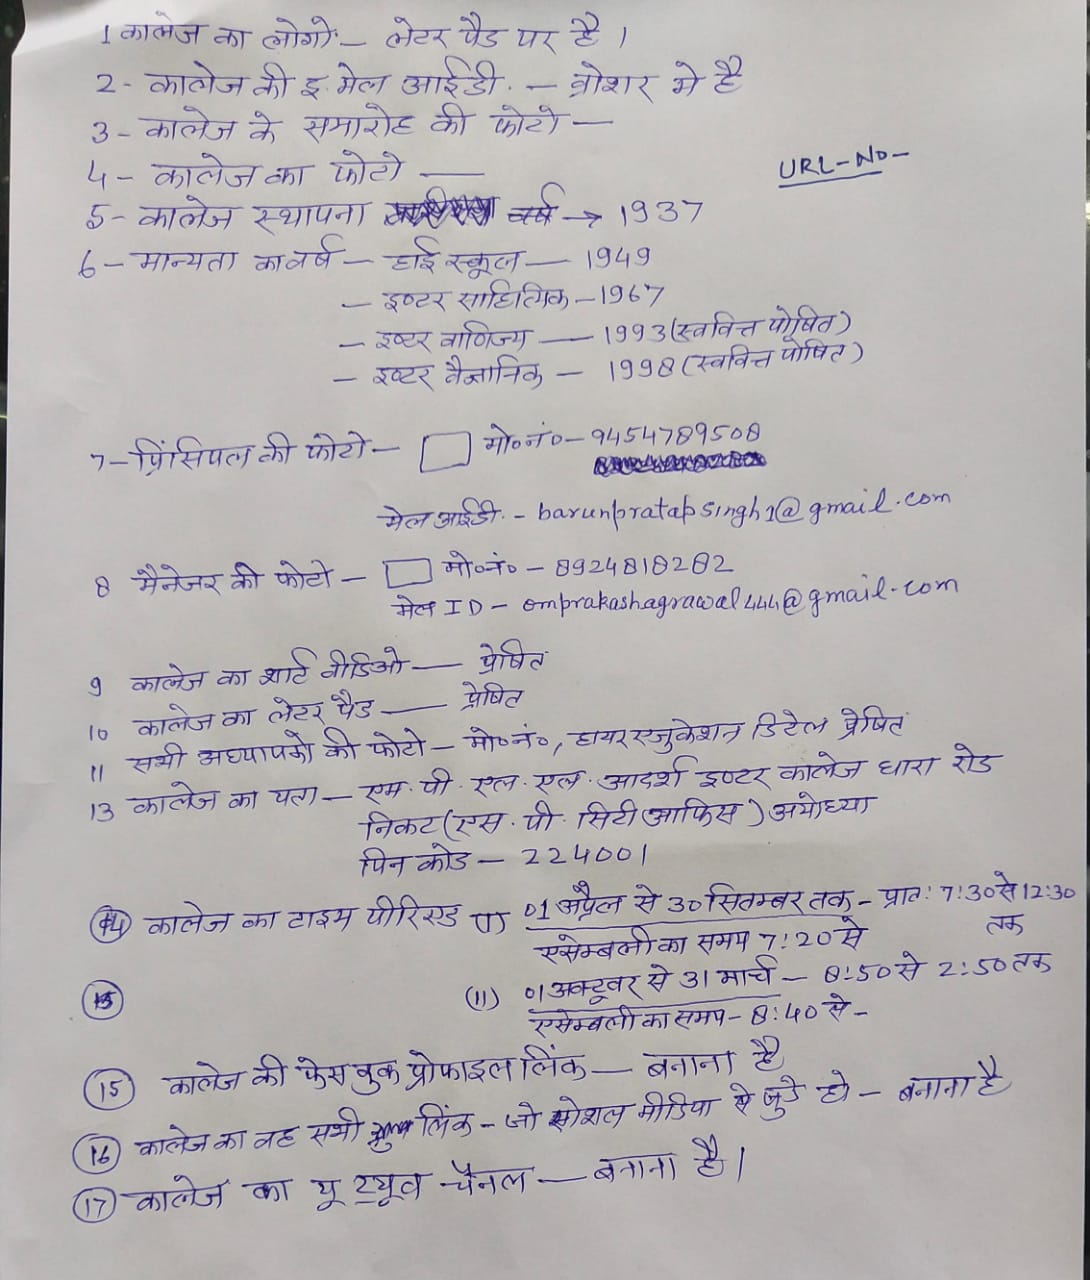 1 कालेज का लोगो - लेटर पैड पर है ।
2 - कालेज की इ. मेल आईडी. - ब्रोशर मे है
3 - कालेज के समारोह की फोटो -
4 - कालेज का फोटो -
URL - No -
5 - कालेज स्थापना वर्ष → 1937
6 - मान्यता का वर्ष - हाई स्कूल - 1949
- इण्टर साहित्यिक - 1967
- इण्टर वाणिज्य - 1993 (स्ववित्त पोषित)
- इण्टर वैज्ञानिक - 1998 (स्ववित्त पोषित)
7 - प्रिंसिपल की फोटो - मो०नं० - 9454789508
मेल आईडी. - barunpratapsingh1@gmail.com
8 मैनेजर की फोटो - मो०नं० - 8924818282
मेल ID - omprakashagrawal444@gmail.com
9 कालेज का शार्ट वीडिओ - प्रेषित
10 कालेज का लेटर पैड - प्रेषित
11 सभी अध्यापको की फोटो - मो०नं०, हायर एजुकेशन डिटेल प्रेषित
13 कालेज का पता - एम. पी. एल. एल. आदर्श इण्टर कालेज धारा रोड
निकट (एस. पी. सिटी आफिस) अयोध्या
पिन कोड - 224001
14 कालेज का टाइम पीरिएड (1) 01 अप्रैल से 30 सितम्बर तक - प्रातः 7:30 से 12:30 तक
एसेम्बली का समय 7:20 से
15 (11) 01 अक्टूवर से 31 मार्च - 8:50 से 2:50 तक
एसेम्बली का समय - 8:40 से -
15 कालेज की फेसबुक प्रोफाइल लिंक - बनाना है
16 कालेज का वह सभी लिंक - जो सोशल मीडिया से जुडे हो - बनाना है
17 कालेज का यू ट्यूव चैनल - बनाना है ।